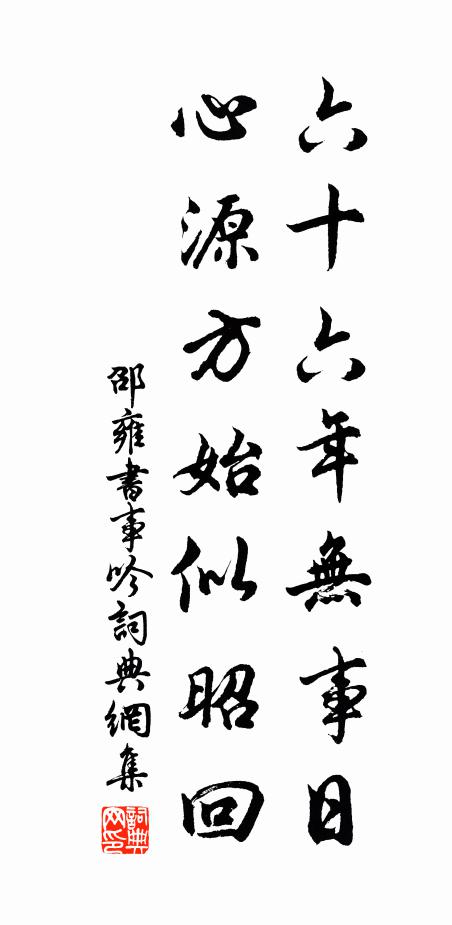 六十六年無事日
心源方始似昭回
邵雍書事吟詞典網集
詞典网印